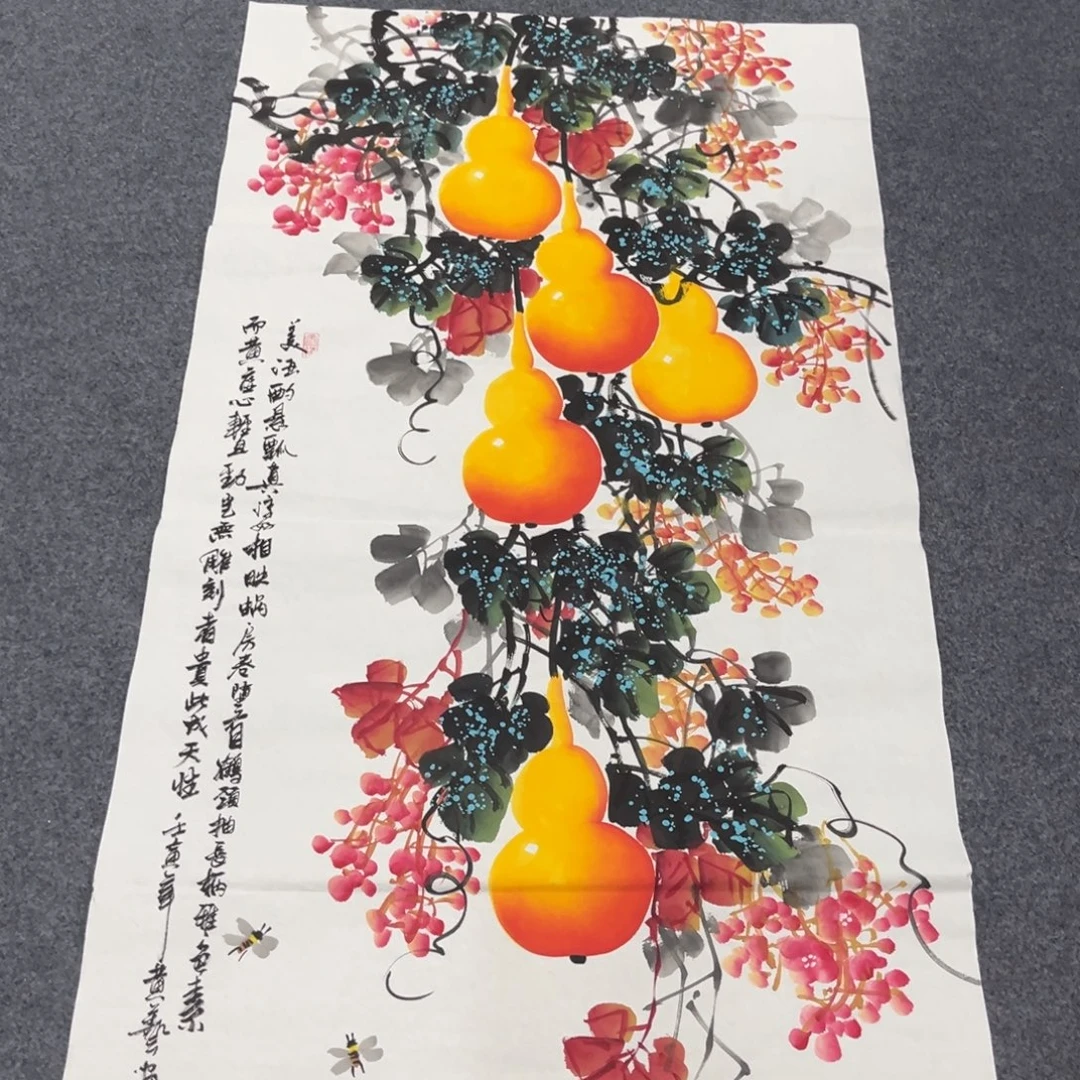 美酒酌悬瓢真淳好相映蜗房卷堕首鹤颈抽长柄雅色素
而黄虚心轻且劲岂无雕刻者贵此成天性 壬寅年 黄艺